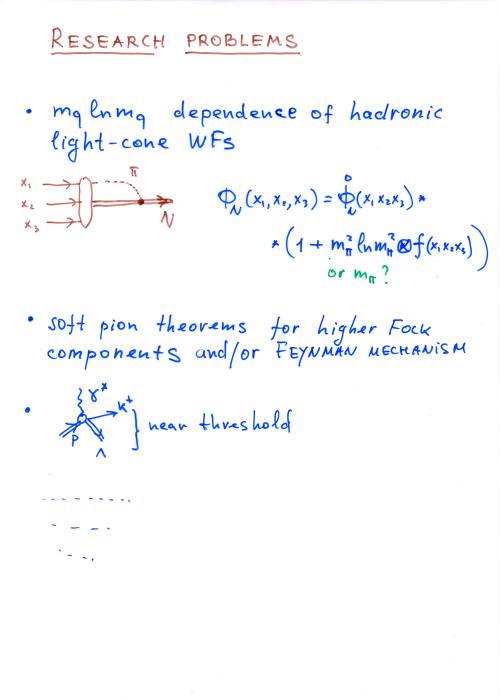 RESEARCH PROBLEMS
• mq ln mq dependence of hadronic
light-cone WFs
π
x₁
x₂
x₃
N
Φ_N (x₁, x₂, x₃) = Φ̊_N (x₁ x₂ x₃) *
* (1 + m_π² ln m_π² ⊗ f(x₁ x₂ x₃))
or m_π ?
• soft pion theorems for higher FOCK
components and/or FEYNMAN MECHANISM
• γ*
K⁺
P
Λ
near threshold